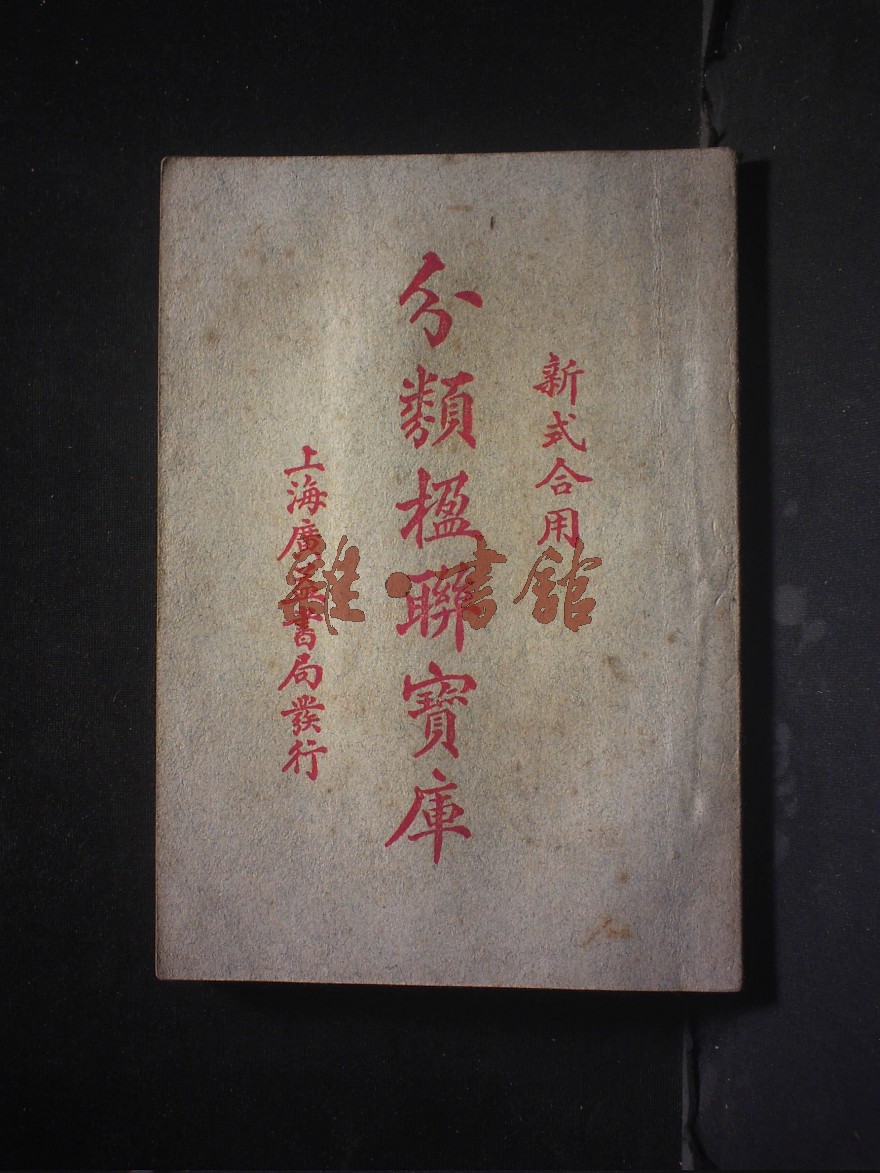 新式合用
分類楹聯寶庫
上海廣益書局發行
雜·書館